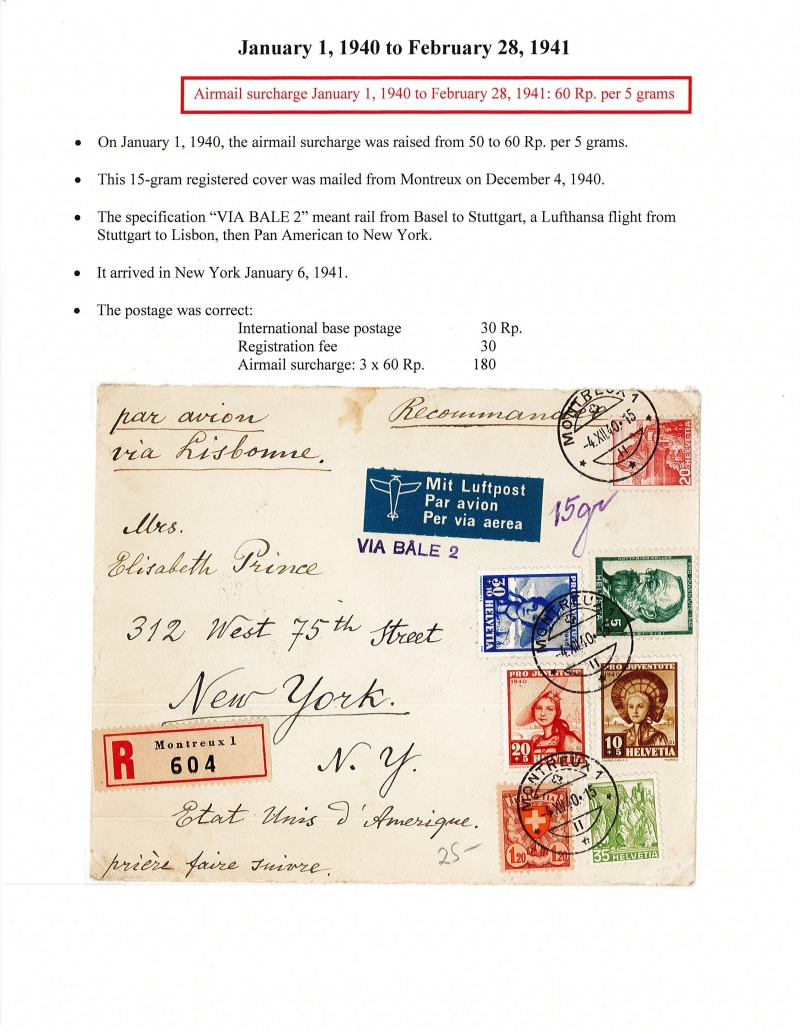 January 1, 1940 to February 28, 1941
Airmail surcharge January 1, 1940 to February 28, 1941: 60 Rp. per 5 grams
• On January 1, 1940, the airmail surcharge was raised from 50 to 60 Rp. per 5 grams.
• This 15-gram registered cover was mailed from Montreux on December 4, 1940.
• The specification “VIA BALE 2” meant rail from Basel to Stuttgart, a Lufthansa flight from
Stuttgart to Lisbon, then Pan American to New York.
• It arrived in New York January 6, 1941.
• The postage was correct:
International base postage 30 Rp.
Registration fee 30
Airmail surcharge: 3 x 60 Rp. 180
par avion
via Lisbonne.
Recommandé
MONTREUX 1
-4.XII.40-15
II
20
HELVETIA
Mit Luftpost
Par avion
Per via aerea
15gr
VIA BÂLE 2
Mrs.
Elisabeth Prince
312 West 75th Street
New York.
N. Y.
Etat Unis d'Amerique.
prière faire suivre.
R
Montreux 1
604
25-
30
+10
HELVETIA
GOTTFRIED KELLER
HELVETIA
5
MONTREUX 1
-4.XII.40-15
II
PRO JUVENTUTE
1940
20
+5
PRO JUVENTUTE
1940
10
+5
HELVETIA
MONTREUX 1
-4.XII.40-15
II
1.20
1.20
35
HELVETIA